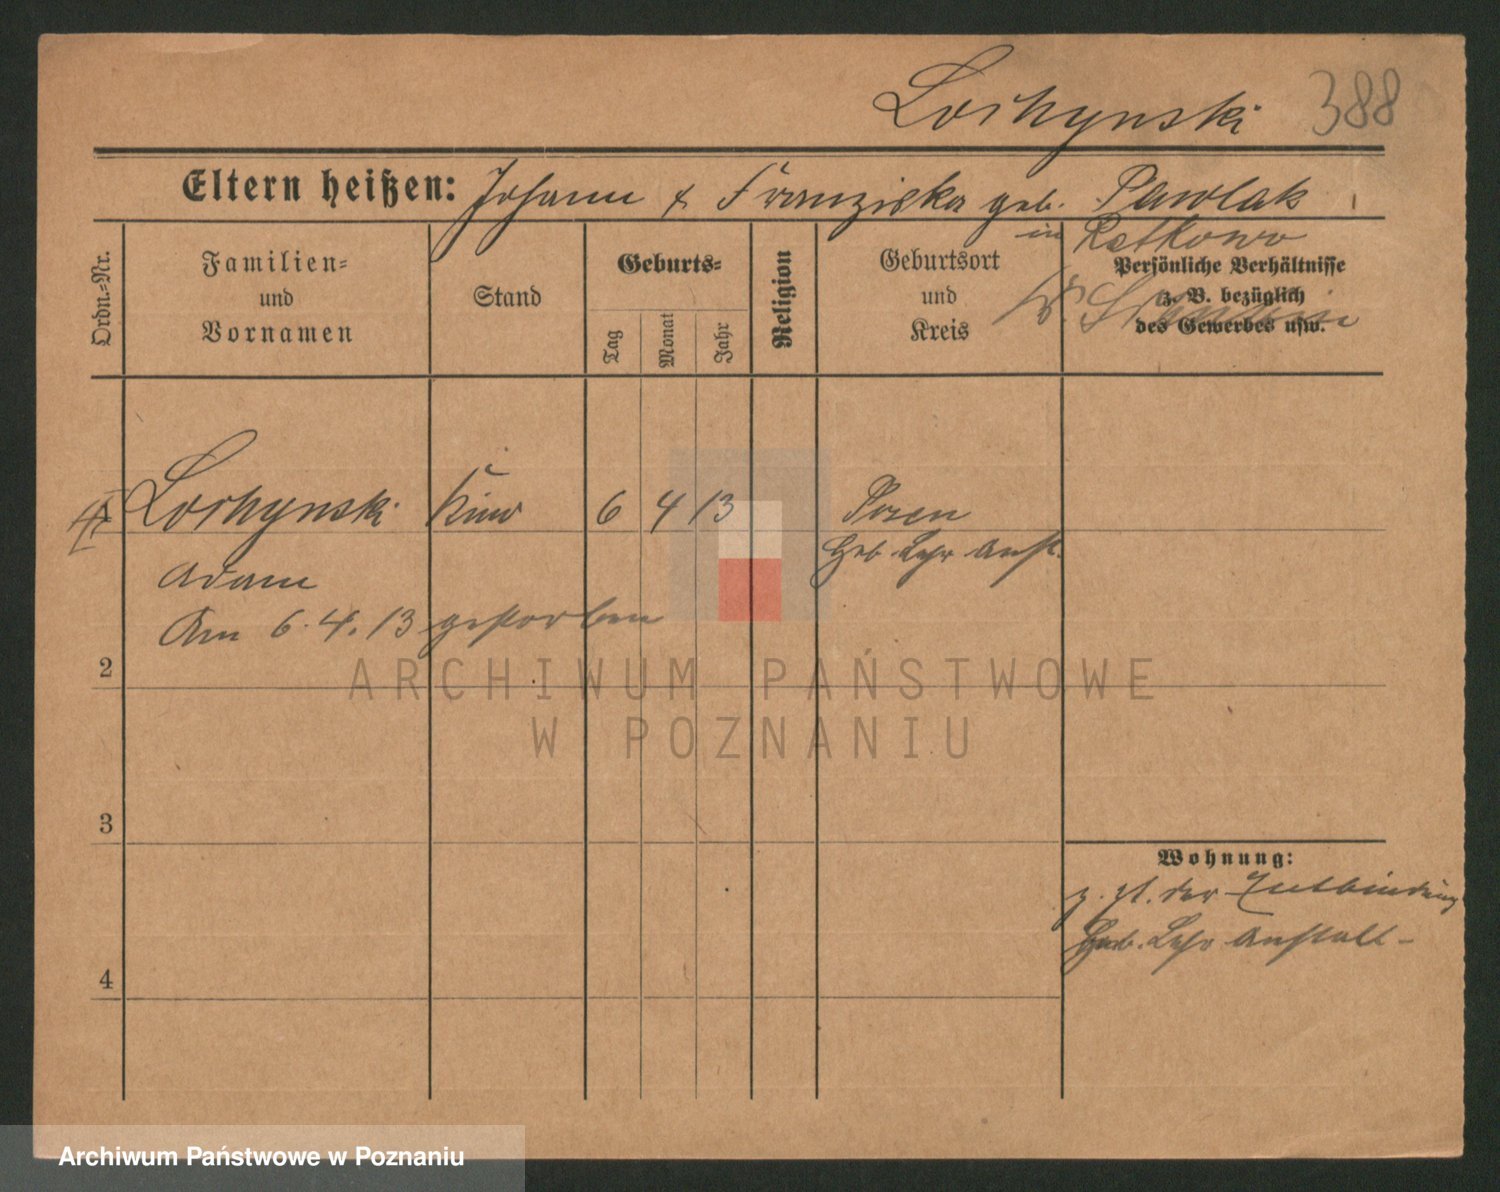 Lorhynski 388
Eltern heißen: Johann & Franziska geb. Pawlak
in Retkowo
Ordn.-Nr.
Familien-
und
Vornamen
Stand
Geburts-
Tag
Monat
Jahr
Religion
Geburtsort
und
Kreis
Persönliche Verhältnisse
z. B. bezüglich
des Gewerbes usw.
Kr.
1 Lorhynski Kind 6 4 13 Posen
Adam Heb. Lehr Anst.
Am 6. 4. 13 gestorben
2
ARCHIWUM PAŃSTWOWE
W POZNANIU
3
Wohnung:
z. Zt. der Entbindung
Heb. Lehr Anstalt
4
Archiwum Państwowe w Poznaniu